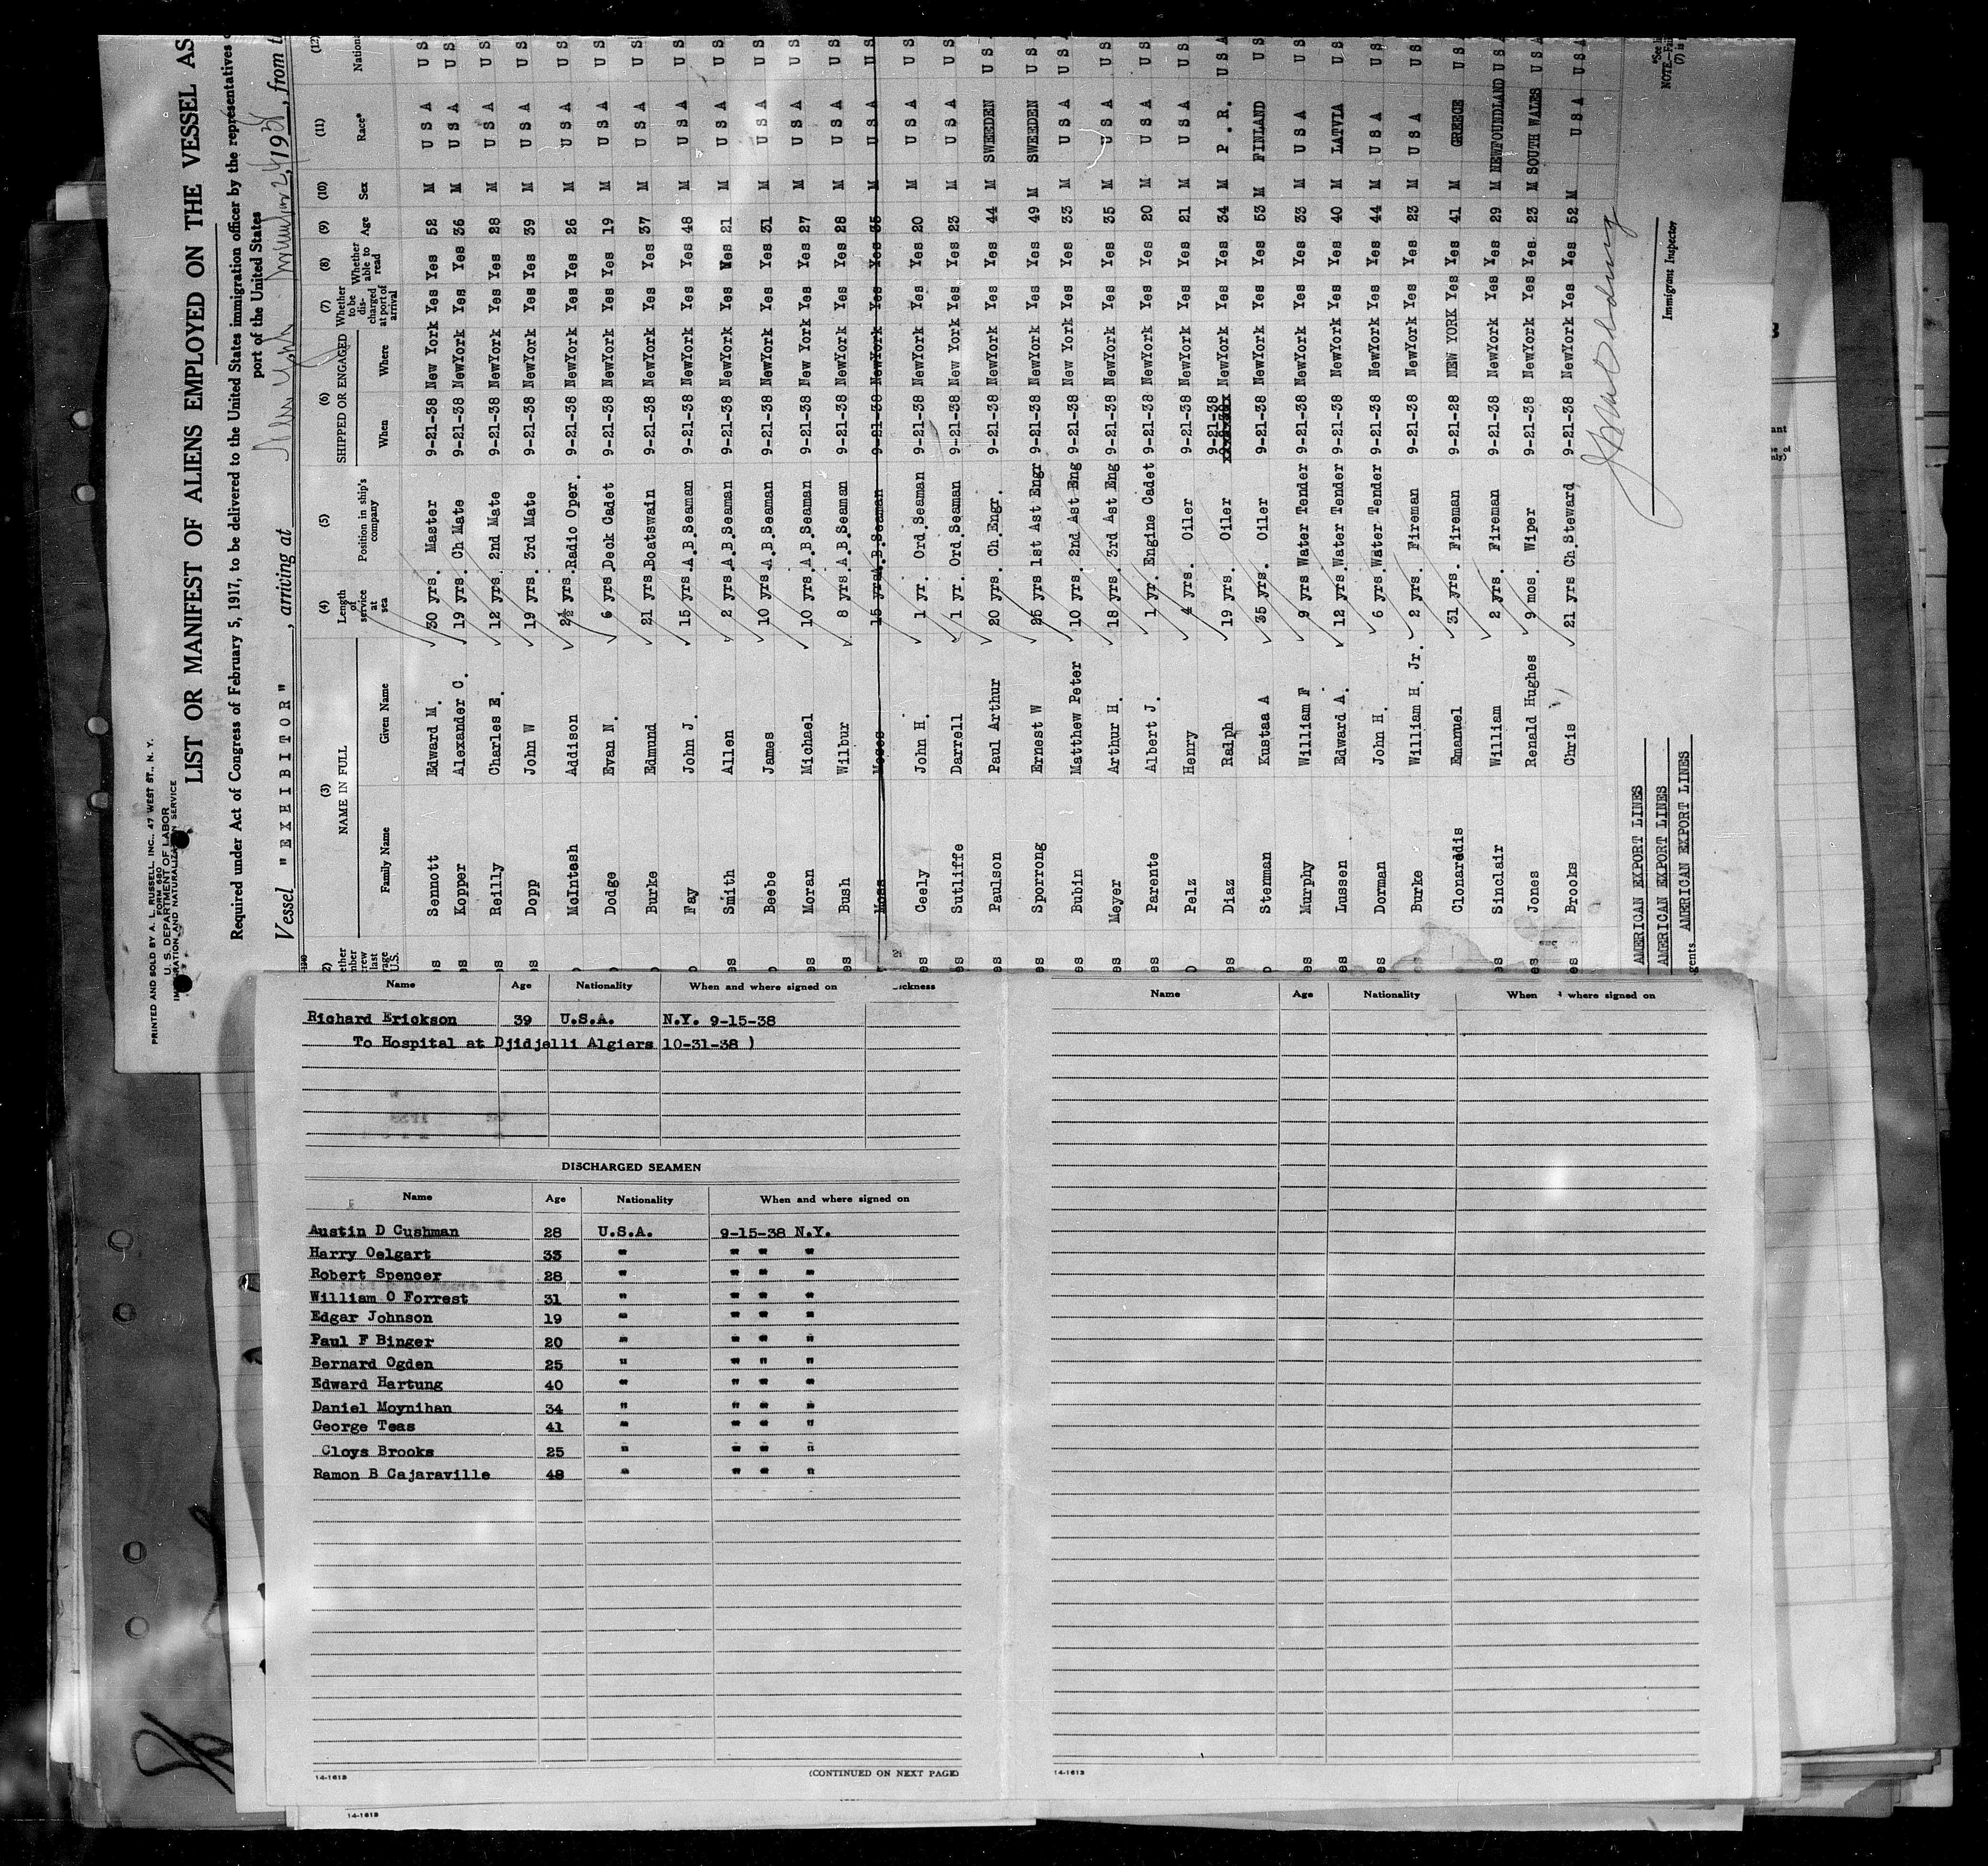 PRINTED AND SOLD BY A. L. RUSSELL, INC., 47 WEST ST., N. Y.
FORM 680
U. S. DEPARTMENT OF LABOR
IMMIGRATION AND NATURALIZATION SERVICE
LIST OR MANIFEST OF ALIENS EMPLOYED ON THE VESSEL AS
Required under Act of Congress of February 5, 1917, to be delivered to the United States immigration officer by the representatives
port of the United States
Vessel " EXHIBITOR " , arriving at New York 1938, from
(3) (4) (5) (6) (7) (8) (9) (10) (11) (12)
NAME IN FULL Length of service at sea Position in ship's company SHIPPED OR ENGAGED Whether to be discharged at port of arrival Whether able to read Age Sex Race*
Family Name Given Name When Where
Sennott Edward M. 30 yrs. Master 9-21-38 New York Yes Yes 52 M U S A U S
Kopper Alexander C. 19 yrs. Ch Mate 9-21-38 NewYork Yes Yes 36 M U S A U S
Reilly Charles E. 12 yrs. 2nd Mate 9-21-38 NewYork Yes Yes 28 M U S A U S
Dopp John W 19 yrs. 3rd Mate 9-21-38 NewYork Yes Yes 39 M U S A U S
McIntosh Addison 2½ yrs. Radio Oper. 9-21-38 NewYork Yes Yes 26 M U S A U S
Dodge Evan N. 6 yrs Deck Cadet 9-21-38 NewYork Yes Yes 19 M U S A U S
Burke Edmund 21 yrs Boatswain 9-21-38 NewYork Yes Yes 37 M U S A U S
Fay John J. 15 yrs. A.B.Seaman 9-21-38 NewYork Yes Yes 48 M U S A U S
Smith Allen 2 yrs A.B.Seaman 9-21-38 NewYork Yes Yes 21 M U S A U S
Beebe James 10 yrs. A.B.Seaman 9-21-38 NewYork Yes Yes 31 M U S A U S
Moran Michael 10 yrs. A.B.Seaman 9-21-38 New York Yes Yes 27 M U S A U S
Bush Wilbur 8 yrs. A.B.Seaman 9-21-38 NewYork Yes Yes 28 M U S A U S
Moss Moses 15 yrs A.B.Seaman 9-21-38 NewYork Yes Yes 35 M U S A U S
Ceely John H. 1 yr. Ord.Seaman 9-21-38 NewYork Yes Yes 20 M U S A U S
Sutliffe Darrell 1 yr. Ord.Seaman 9-21-38 New York Yes Yes 23 M U S A U S
Paulson Paul Arthur 20 yrs. Ch.Engr. 9-21-38 NewYork Yes Yes 44 M SWEEDEN U S
Sporrong Ernest W 25 yrs 1st Ast Engr 9-21-38 NewYork Yes Yes 49 M SWEEDEN U S
Bubin Matthew Peter 10 yrs. 2nd Ast Eng 9-21-38 New York Yes Yes 33 M U S A U S
Meyer Arthur H. 18 yrs. 3rd Ast Eng 9-21-38 NewYork Yes Yes 35 M U S A U S
Parente Albert J. 1 yr. Engine Cadet 9-21-38 NewYork Yes Yes 20 M U S A U S
Pelz Henry 4 yrs. Oiler 9-21-38 NewYork Yes Yes 21 M U S A U S
Diaz Ralph 19 yrs. Oiler 9-21-38 NewYork Yes Yes 34 M P . R. U S A
Stenman Kustaa A 35 yrs. Oiler 9-21-38 NewYork Yes Yes 53 M FINLAND U S
Murphy William F 9 yrs Water Tender 9-21-38 NewYork Yes Yes 33 M U S A U S
Lussen Edward A. 12 yrs. Water Tender 9-21-38 NewYork Yes Yes 40 M LATVIA U S
Dorman John H. 6 yrs. Water Tender 9-21-38 NewYork Yes Yes 44 M U S A U S
Burke William H. Jr. 2 yrs. Fireman 9-21-38 NewYork Yes Yes 23 M U S A U S
Clonaredis Emanuel 31 yrs. Fireman 9-21-28 NEW YORK Yes Yes 41 M GREECE U S
Sinclair William 2 yrs. Fireman 9-21-38 NewYork Yes Yes 29 M NEWFOUNDLAND U S A
Jones Renald Hughes 9 mos. Wiper 9-21-38 NewYork Yes Yes. 23 M SOUTH WALES U S A
Brooks Chris 21 yrs Ch.Steward 9-21-38 NewYork Yes Yes 52 M U S A U S A
AMERICAN EXPORT LINES
AMERICAN EXPORT LINES
AMERICAN EXPORT LINES
Immigrant Inspector
Name Age Nationality When and where signed on
Richard Erickson 39 U.S.A. N.Y. 9-15-38
To Hospital at Djidjelli Algiers 10-31-38 )
DISCHARGED SEAMEN
Name Age Nationality When and where signed on
Austin D Cushman 28 U.S.A. 9-15-38 N.Y.
Harry Oelgart 33 " " " "
Robert Spencer 28 " " " "
William O Forrest 31 " " " "
Edgar Johnson 19 " " " "
Paul F Binger 20 " " " "
Bernard Ogden 25 " " " "
Edward Hartung 40 " " " "
Daniel Moynihan 34 " " " "
George Teas 41 " " " "
Cloys Brooks 25 " " " "
Ramon B Cajaraville 48 " " " "
14-1613 (CONTINUED ON NEXT PAGE)
14-1613
Name Age Nationality When where signed on
14-1613